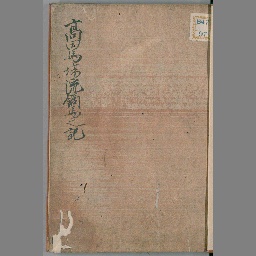 高田馬場流鏑馬之記